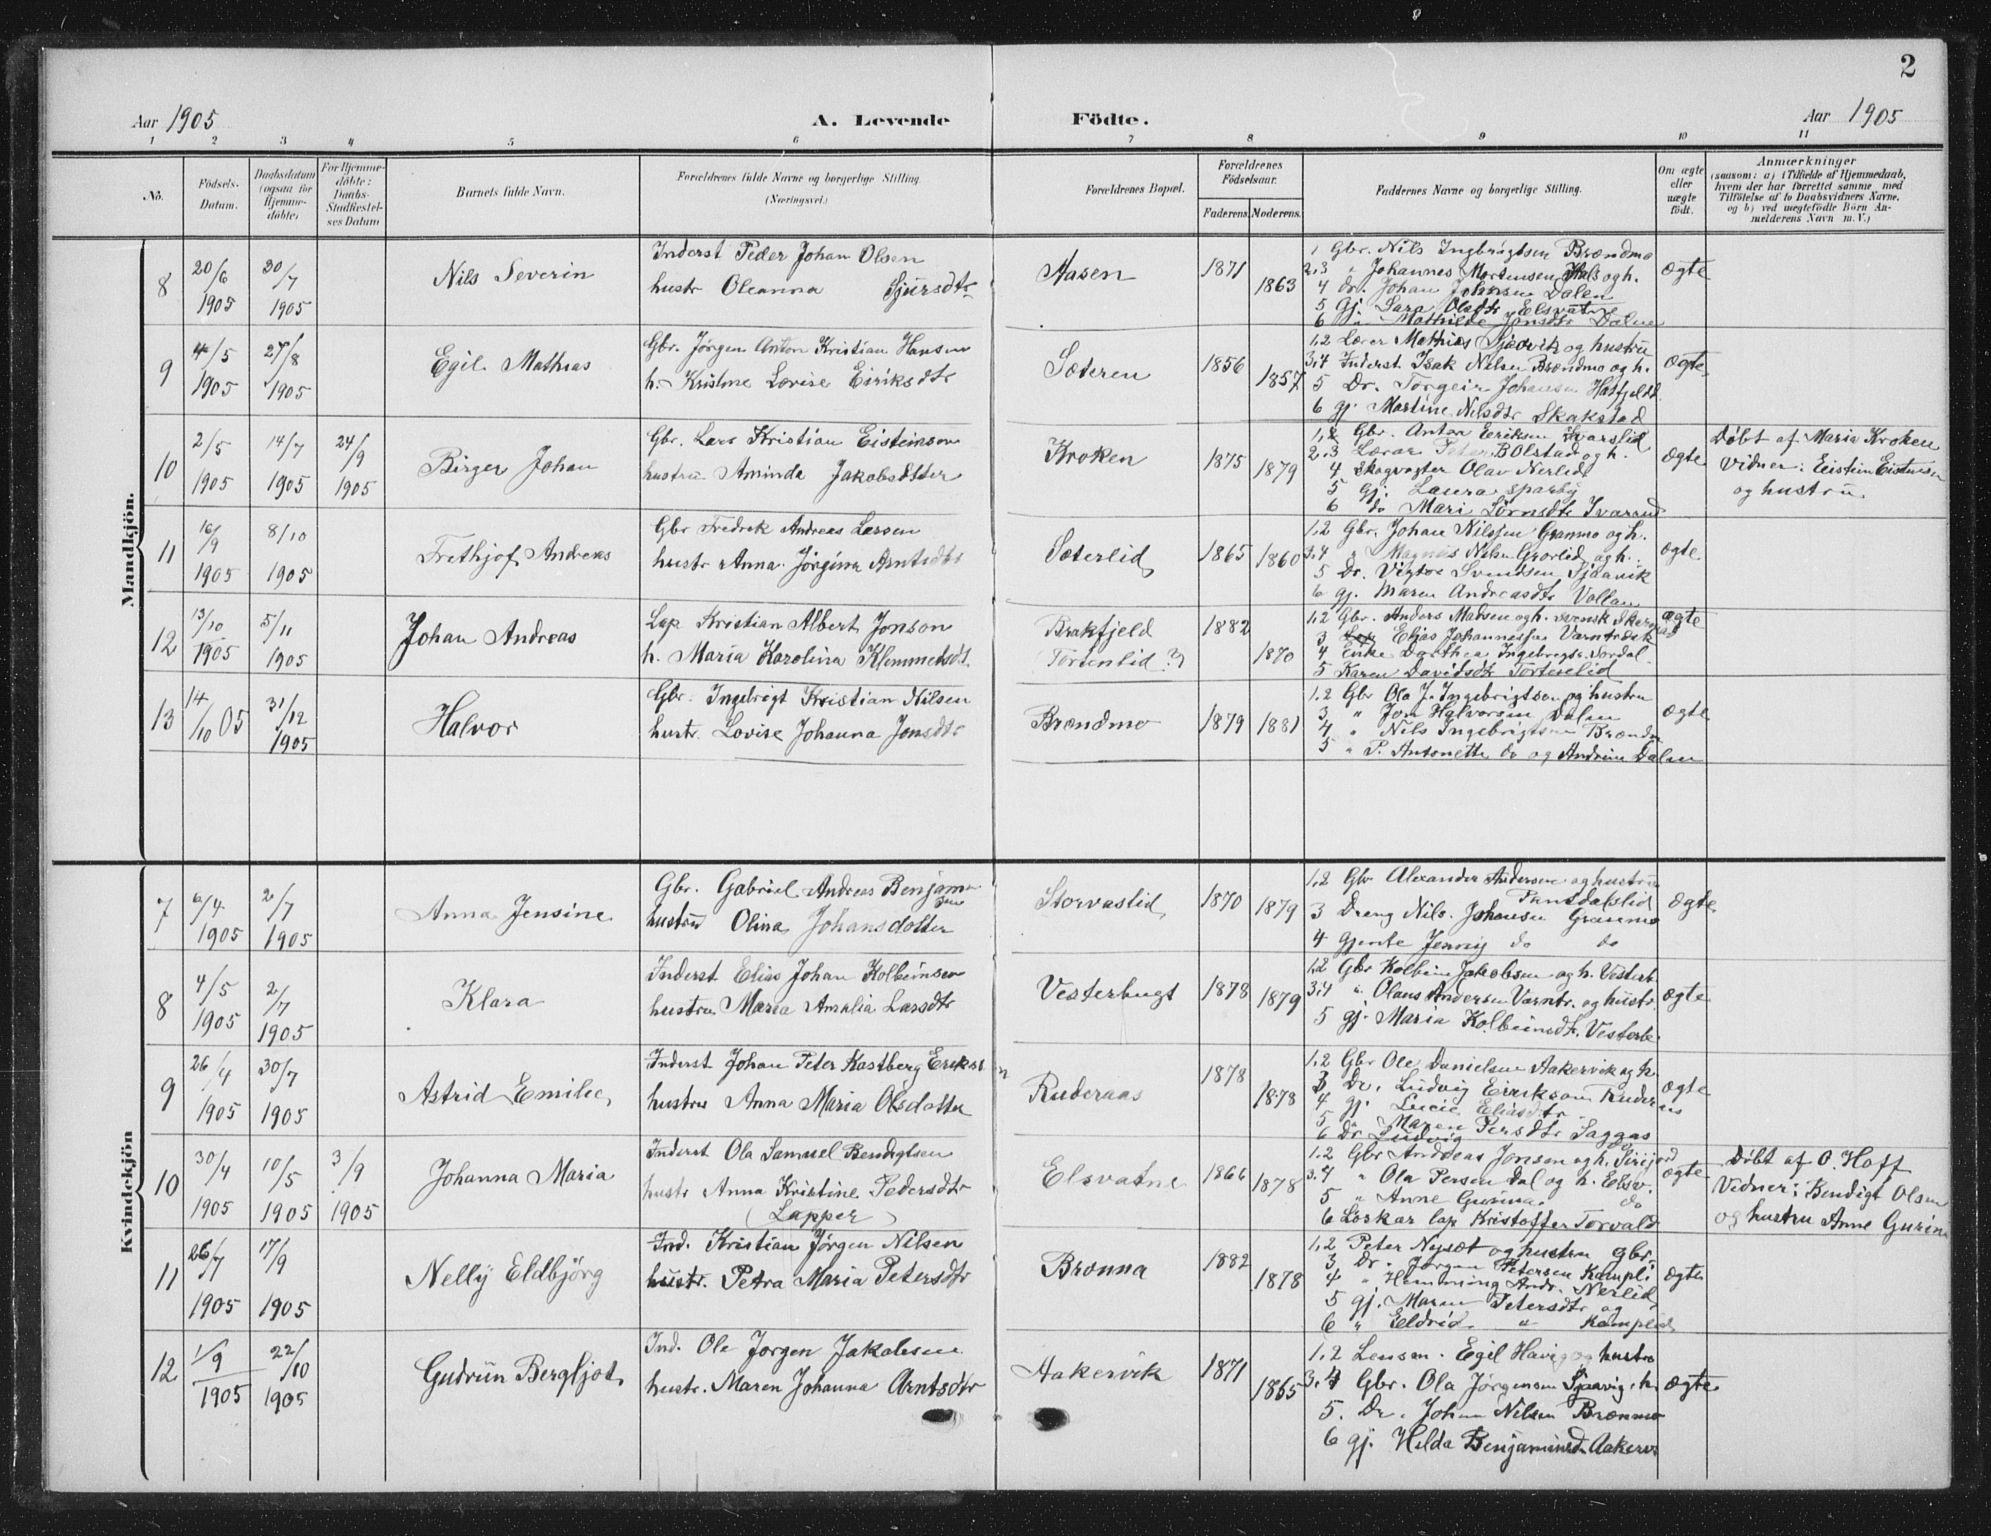 2
Aar 1905 A. Levende Födte. Aar 1905
1 2 3 4 5 6 7 8 9 10 11
No.
Födsels-Datum.
Daabsdatum (ogsaa for Hjemmedöbte)
For Hjemmedöbte: Daabs-Stadfæstelses Datum
Barnets fulde Navn.
Forældrenes fulde Navne og borgerlige Stilling.
(Næringsvei.)
Forældrenes Bopæl.
Forældrenes Födselsaar.
Faderens. Moderens.
Faddernes Navne og borgerlige Stilling.
Om ægte eller uægte födt.
Anmærkninger
(saasom: a) i Tilfælde af Hjemmedaab,
hvem der har forrettet samme, med
Tilföielse af to Daabsvidners Navne,
og b) ved uægtefödte Börn An-
melderens Navn m. V.)
Mandkjön.
8 20/6 1905 30/7 1905 Nils Severin
Inderst Peder Johan Olsen
hustr Oleanna Sjursdtr
Aasen 1871 1863
1 Gbr. Nils Ingbrigtsen Brændmo
2.3 " Johannes Mortensen og h.
4 dr. Johan Johnsen Dalen
5 Gj. Sara Olsdtr Elsvatn
6 " Mathilde Jonsdtr Dalen
ægte
9 4/5 1905 27/8 1905 Egil Mathias
Gbr. Jörgen Anton Kristian Hansen
h. Kristine Lovise Eiriksdtr
Sæteren 1856 1857
1,2 Lærer Mathias Sjaavik og hustru
3,4 Inderst Isak Nilsen Brændmo og h.
5 Dr. Torgeir Johansen Hatfjeldd
6 gj. Martine Nilsdtr Skakstad
ægte
10 2/5 1905 14/7 1905 24/9 1905 Birger Johan
Gbr. Lars Kristian Eisteinson
hustru Aminda Jakobsdtter
Kroken 1875 1879
1,2 Gbr. Anton Eriksen Svarslid
2.3 Lærar Peter Bolstad og h.
4 Skogvagter Olav Nerlid
5 gj. Laura Sparby
6 do Mari
ægte
Döbt af Maria Kroken
Vidner: Eistein Eistensen
og hustru
11 16/9 1905 8/10 1905 Frethjof Andreas
Gbr Fredrik Andreas Larsen
hustr Anna Jörgina Arntsdtr
Sæterlid 1865 1860
1,2 Gbr. Johan Nilssen Granmo og h.
3.4 " Magnus Nilsen Grorlid og h.
5 Dr. Vigtor Svendsen Sjaavik
6 gj. Maren Andreasdtr Vollan
ægte
12 13/10 1905 5/11 1905 Johan Andreas
Lap Kristian Albert Jonson
h. Maria Karolina Klemmetsdt.
Brakfjeld
(Tortenlid?) 1882 1870
1,2 Gbr. Anders Madsen og h. svensk
3 Lap Elias Johannessen Varntresk
4 Enke Dorthea Ingebrigts. Sordal
5 Karen Davidsdtr Tortenlid
ægte
13 14/10 05 31/12 1905 Halvor
Gbr. Ingebrigt Kristian Nilsen
hustr. Lovise Johanna Jonsdtr
Brændmo 1879 1881
1,2 Gbr Ola J. Ingebrigtson og hustru
3 " Jon Halvorsen Dalen
4 " Nils Ingebrigtsen Brændm
5 " P. Antonette do og Andrine Dalen
ægte
Kvindekjön
7 6/4 1905 2/7 1905 Anna Jensine
Gbr. Gabriel Andreas Benjamin
sen
hustru Olina Johansdotter
Storvaslid 1870 1879
1,2 Gbr Alexander Andersen og hustru
Pantdalslid
3 Dreng Nils Johansen Granmo
4 Gjente Jenny do do
ægte
8 4/5 1905 2/7 1905 Klara
Inderst Elias Johan Kolbeinsen
hustru Maria Amalia Larsdtr
Vesterbugt 1878 1879
1,2 Gbr Kolbein Jakobsen og h. Vesterb.
3,4 " Olaus Andersen Varntr. og hustr
5 gj. Maria Kolbeinsdtr. Vesterb.
ægte
9 26/4 1905 30/7 1905 Astrid Emilie
Inderst Johan Peter Kastberg Eriksen
hustru Anna Maria Olsdotter
Ruderaas 1878 1878
1,2 Gbr Ole Danielsen Aakervik og h.
3 Dr. Ludvig Eirikson Ruderaas
4 gj. Lucie Eliasdtr
5 " Maren Persdtr Saggas
6 Dr Ludvig
ægte
10 30/4 1905 10/5 1905 3/9 1905 Johanna Maria
Inderst Ola Samuel Bendigtsen
hustr Anna Kristine Pedersdtr
(Lapper)
Elsvatne 1866 1878
1.2 Gbr Andreas Jonsen og h.
3.4 " Ola Persen Dal og h. Elsv.
5 " Anne Gurina do
6 Loskar lap Kristoffer Torvald
ægte
Döbt af O. Hoff
Vidner: Bendigt Olsen
og hustru Anne Gurina
11 26/7 1905 17/9 1905 Nelly Eldbjörg
Ind. Kristian Jörgen Nilsen
hustr. Petra Maria Petersdtr
Brönna 1882 1878
1.2 Peter Nysæt og hustru Gbr.
3 Dr. Jörgen Petersen Kampli
4 " Hemming Andr. Nerlid
5 gj. Maren Petersdtr og
6 " Eldrid " Kamplid
ægte
12 1/9 1905 22/10 1905 Gudrun Bergljot
Ind. Ole Jörgen Jakobsen
hustr. Maren Johanna Arntsdtr
Aakervik 1871 1865
1,2 Lensm. Egil Havig og hustru
3,4 Gbr. Ola Jörgensen Sjaavig, h.
5. Dr. Johan Nilsen Brænmo
6 gj. Hilda Benjaminsd. Aakerv.
ægte